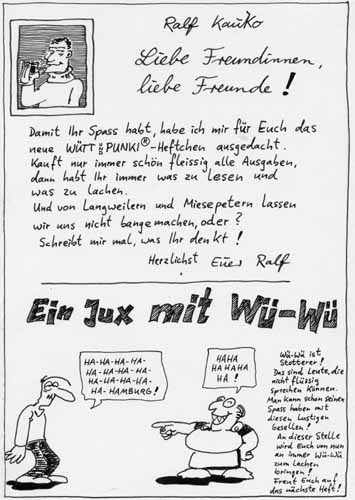 Ralf Kauko
Liebe Freundinnen,
liebe Freunde!
Damit Ihr Spass habt, habe ich mir für Euch das
neue WÜTT UND PUNKI®-Heftchen ausgedacht.
Kauft nur immer schön fleissig alle Ausgaben,
dann habt Ihr immer was zu lesen und
was zu lachen.
Und von Langweilern und Miesepetern lassen
wir uns nicht bangemachen, oder?
Schreibt mir mal, was Ihr denkt!
Herzlichst Euer Ralf
Ein Jux mit Wü-Wü
HA-HA-HA-HA-
HA-HA-HA-HA-
HA-HA-HA-HA-
HA-HAMBURG!
HAHA
HA HA HA
HA!
Wü-Wü ist
Stotterer!
Das sind Leute, die
nicht flüssig
sprechen können.
Man kann schon seinen
Spass haben mit
diesen lustigen
Gesellen!
An dieser Stelle
wird Euch von nun
an immer Wü-Wü
zum Lachen
bringen!
Freut Euch auf
das nächste Heft!